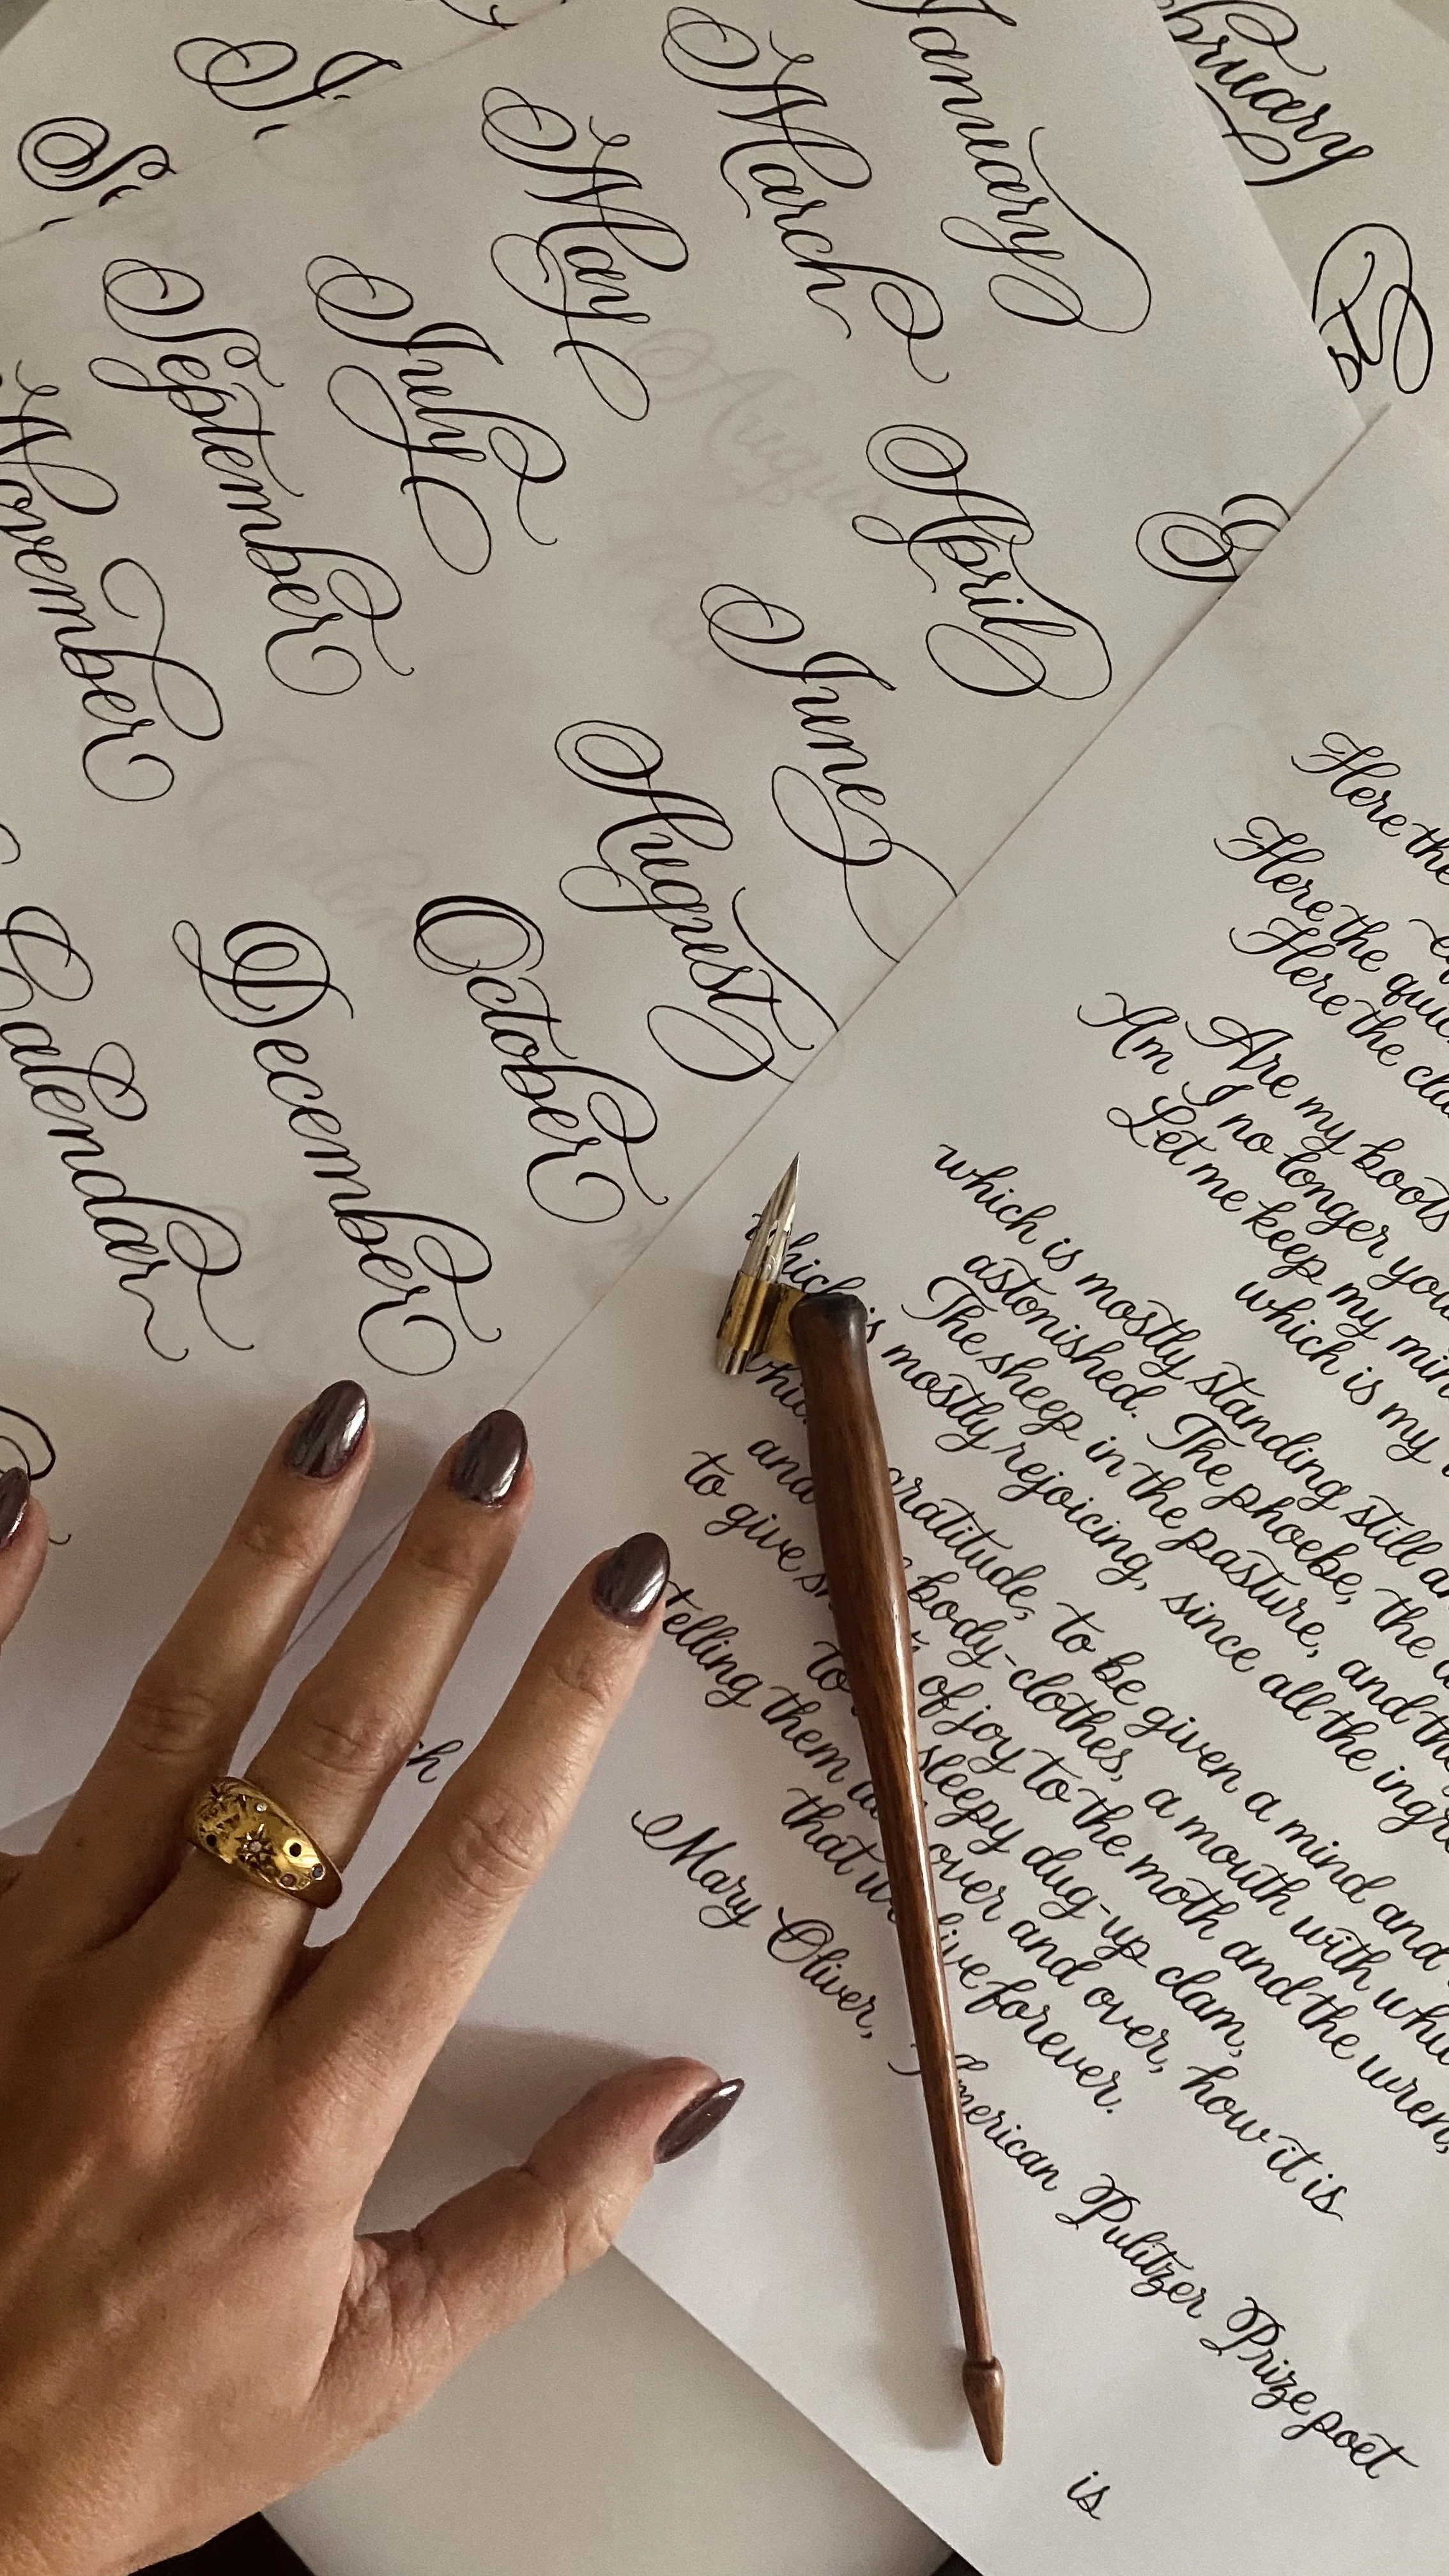 January
March
May
July
September
November
April
June
August
October
December
Calendar
Here the
Here the
Here the
Are my boots
Am I no longer
Let me keep my
which is my
which is mostly standing still
astonished. The phoebe, the
The sheep in the pasture, and the
which is mostly rejoicing, since all the
gratitude, to be given a mind and
body-clothes, a mouth with
to give of joy to the moth and the wren,
sleepy dug-up clam,
telling them over and over, how it is
that live forever.
Mary Oliver, American Pulitzer Prize poet
is